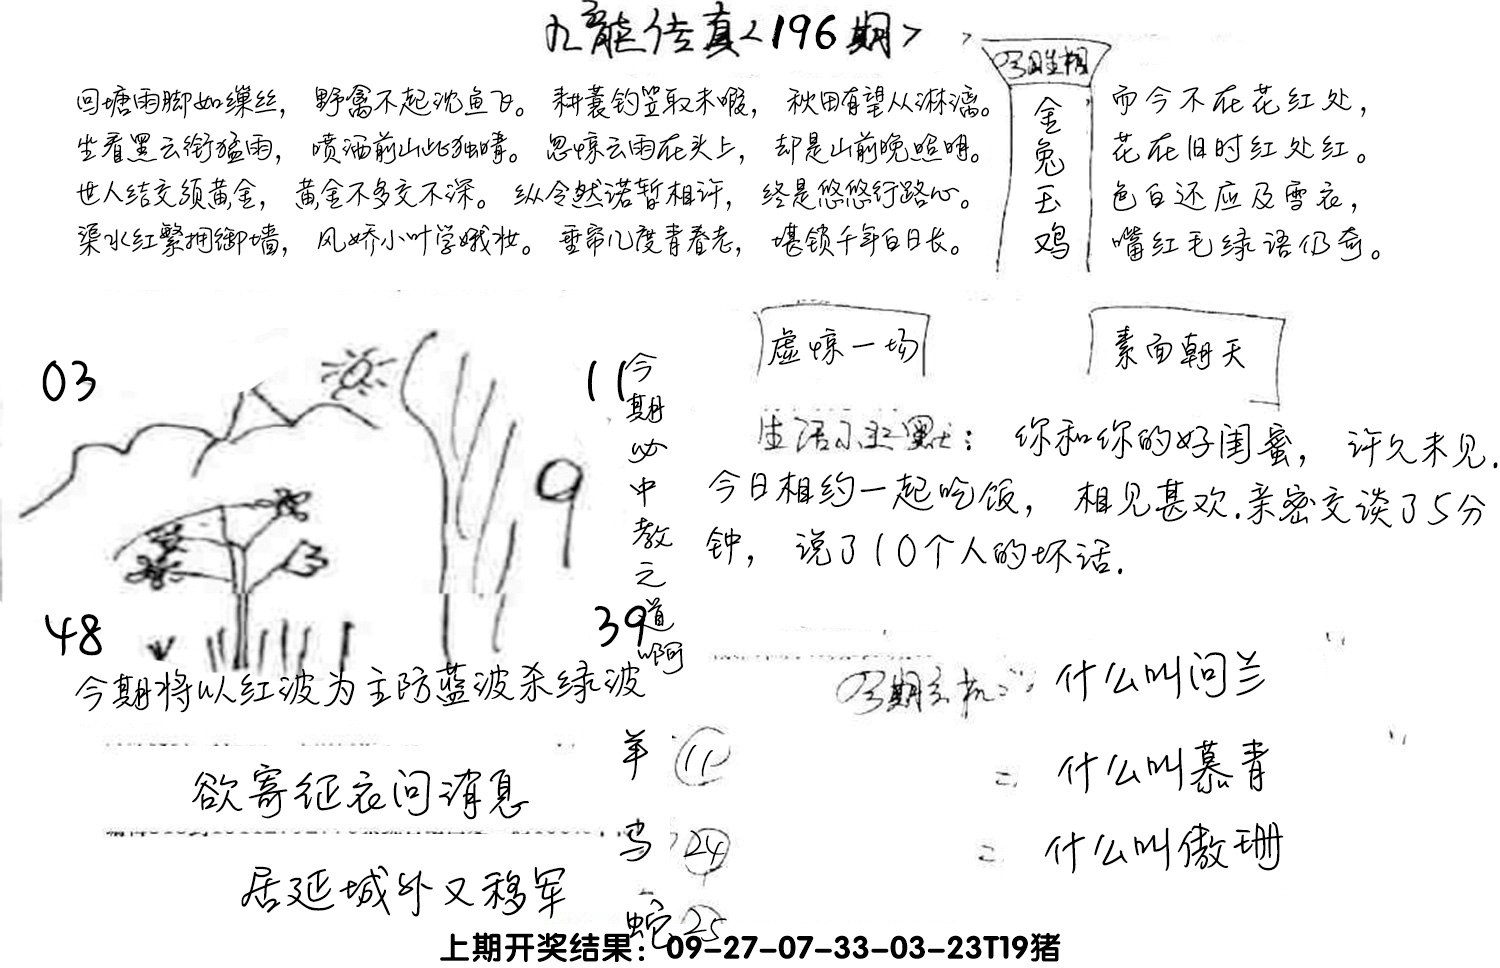 九龙传真<196期>
回塘雨脚如缲丝，野禽不起沈鱼飞。耕蓑钓笠取未暇，秋田有望从淋漓。
坐看黑云衔猛雨，喷洒前山此独晴。忽惊云雨在头上，却是山前晚照明。
世人结交须黄金，黄金不多交不深。纵令然诺暂相许，终是悠悠行路心。
渠水红繁拥御墙，风娇小叶学娥妆。垂帘几度青春老，堪锁千年白日长。
今期生相
金兔玉鸡
而今不在花红处，
花在旧时红处红。
色白还应及雪衣，
嘴红毛绿语仍奇。
03
11
9
48
39
今期必中教之道啊
虚惊一场
素面朝天
生活小幽默：你和你的好闺蜜，许久未见.
今日相约一起吃饭，相见甚欢.亲密交谈了5分
钟，说了10个人的坏话.
今期将以红波为主防蓝波杀绿波
欲寄征衣问消息
居延城外又移军
羊 11
鸡 24
蛇 25
今期玄机：什么叫问兰
= 什么叫慕青
= 什么叫傲珊
上期开奖结果：09-27-07-33-03-23T19猪